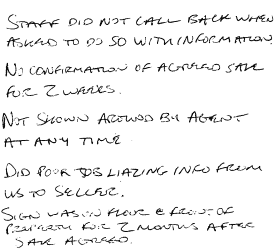 STAFF DID NOT CALL BACK WHEN
ASKED TO DO SO WITH INFORMATION.
NO CONFIRMATION OF AGREED SALE
FOR 2 WEEKS.
NOT SHOWN AROUND BY AGENT
AT ANY TIME
DID POOR JOB LIAZING INFO FROM
US TO SELLER.
SIGN WAS IN FLOOR @ FRONT OF
PROPERTY FOR 2 MONTHS AFTER
SALE AGREED.